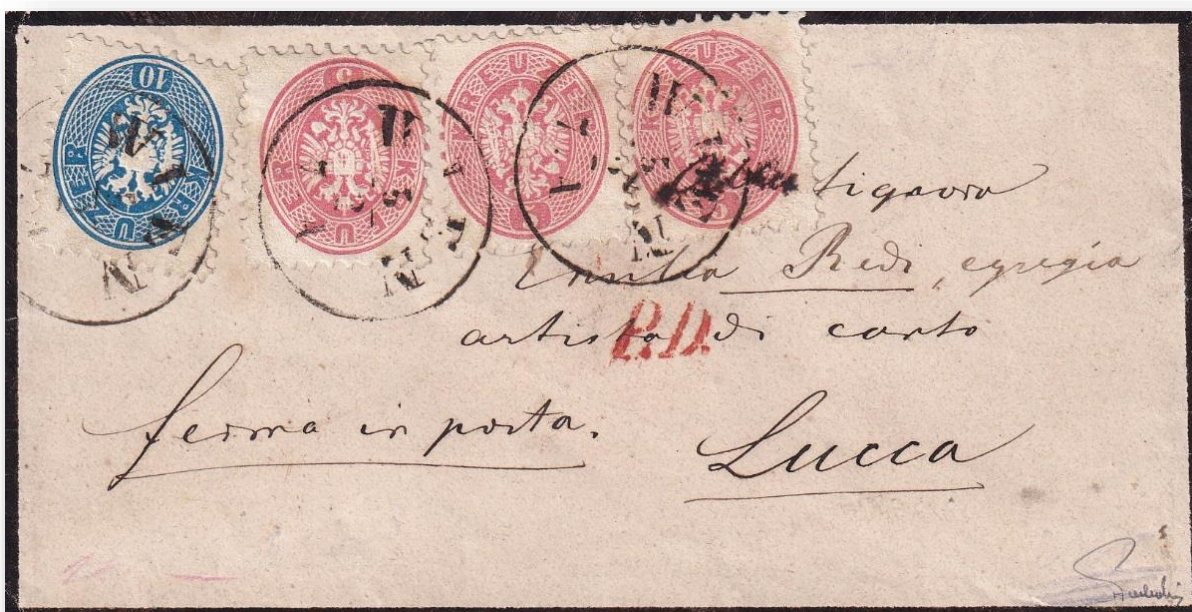 10
KREUZER
5
KREUZER
KREUZER
5
KREUZER
5
WIEN
WIEN
WIEN
Signora
Emilia Redi, egregia
artista di canto
P.D.
ferma in posta.
Lucca